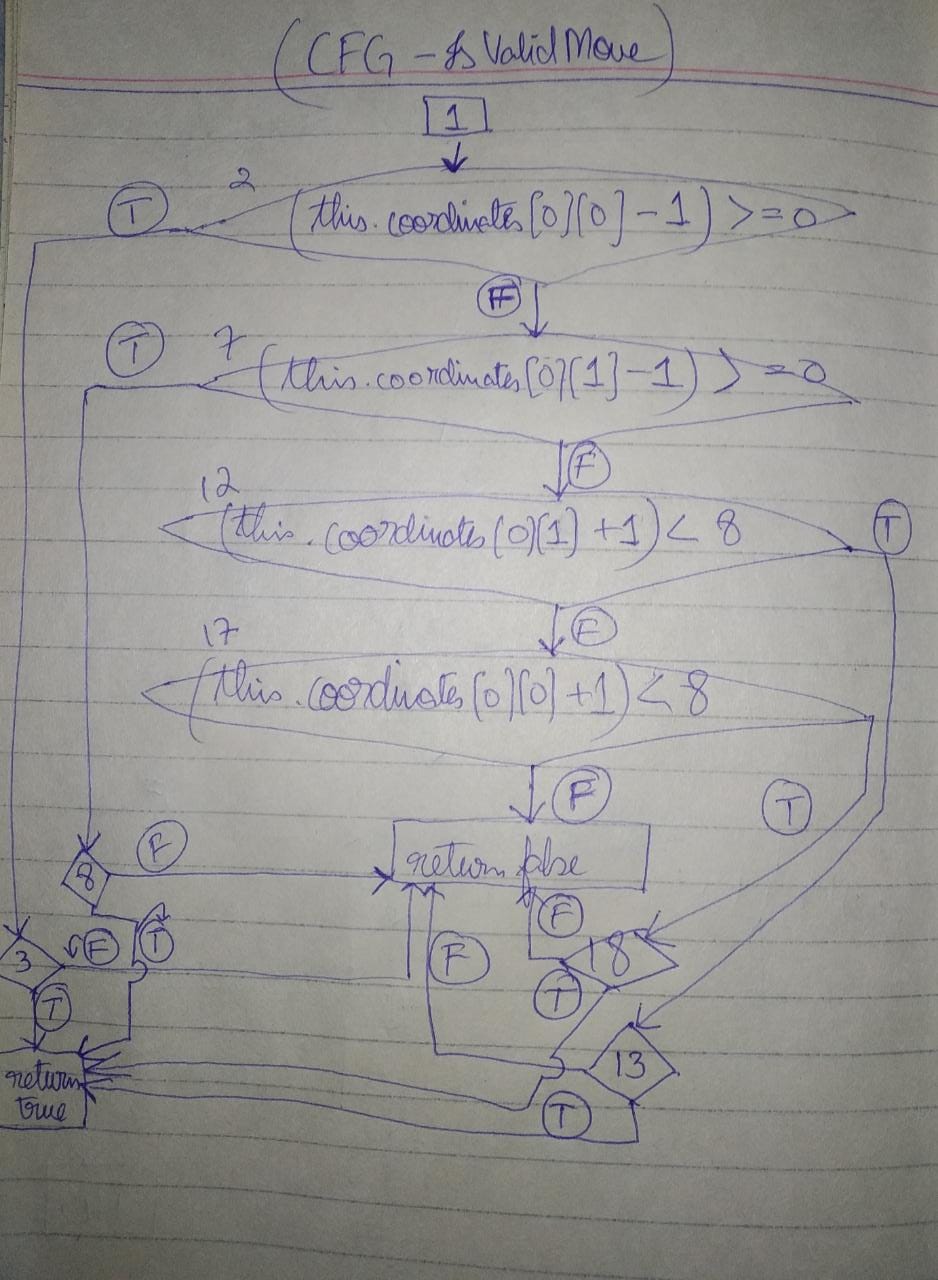 (CFG - Is Valid Move)
1
T
2
(this.coordinates[0][0]-1) >=0
F
T
7
(this.coordinates[0][1]-1) >=0
F
12
(this.coordinates[0][1]+1) < 8
T
F
17
(this.coordinates[0][0]+1) < 8
F
T
F
return false
8
F
3
F
T
F
18
T
T
13
return
true
T